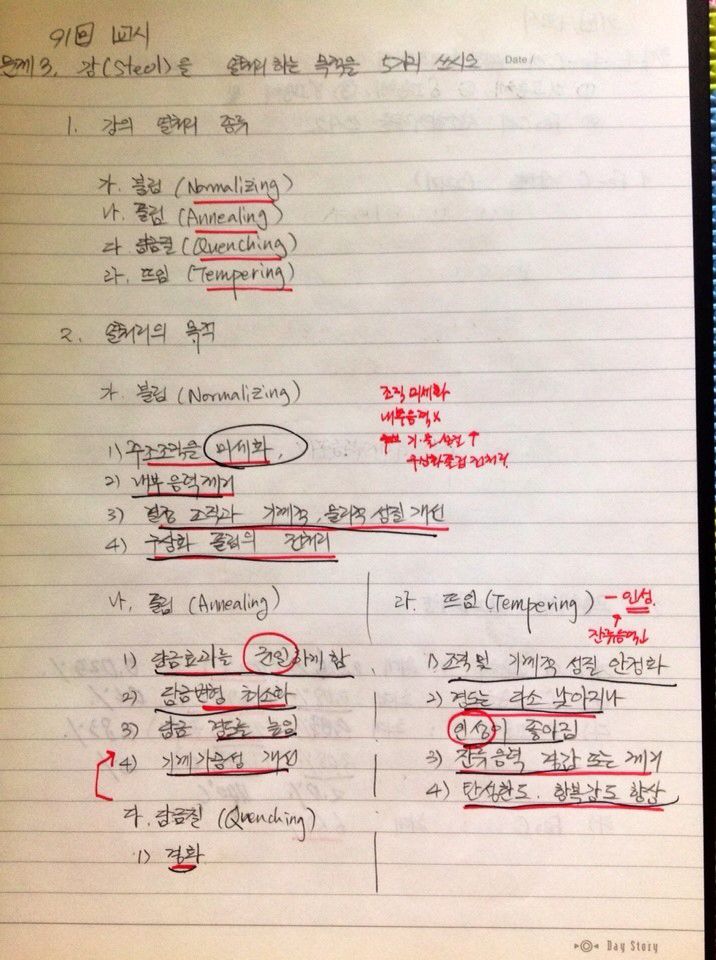 91회 1교시
문제 3. 강(Steel)을 열처리 하는 목적을 5가지 쓰시오 Date /
1. 강의 열처리 종류
가. 불림 (Normalizing)
나. 풀림 (Annealing)
다. 담금질 (Quenching)
라. 뜨임 (Tempering)
2. 열처리의 목적
가. 불림 (Normalizing)
조직 미세화
내부응력 x
기·물 성질 ↑
구상화풀림 전처리
1) 주조조직을 미세화,
2) 내부응력제거
3) 결정 조직과 기계적, 물리적 성질 개선
4) 구상화 풀림의 전처리
나. 풀림 (Annealing)
1) 담금효과를 균일하게 함
2) 담금변형 최소화
3) 담금 경도를 높임
4) 기계가공성 개선
다. 담금질 (Quenching)
1) 경화
라. 뜨임 (Tempering) – 인성.
↑
잔류응력↓
1) 조직 및 기계적 성질 안정화
2) 경도는 다소 낮아지나
인성이 좋아짐
3) 잔류응력 경감 또는 제거
4) 탄성한도. 항복강도 향상
Day Story